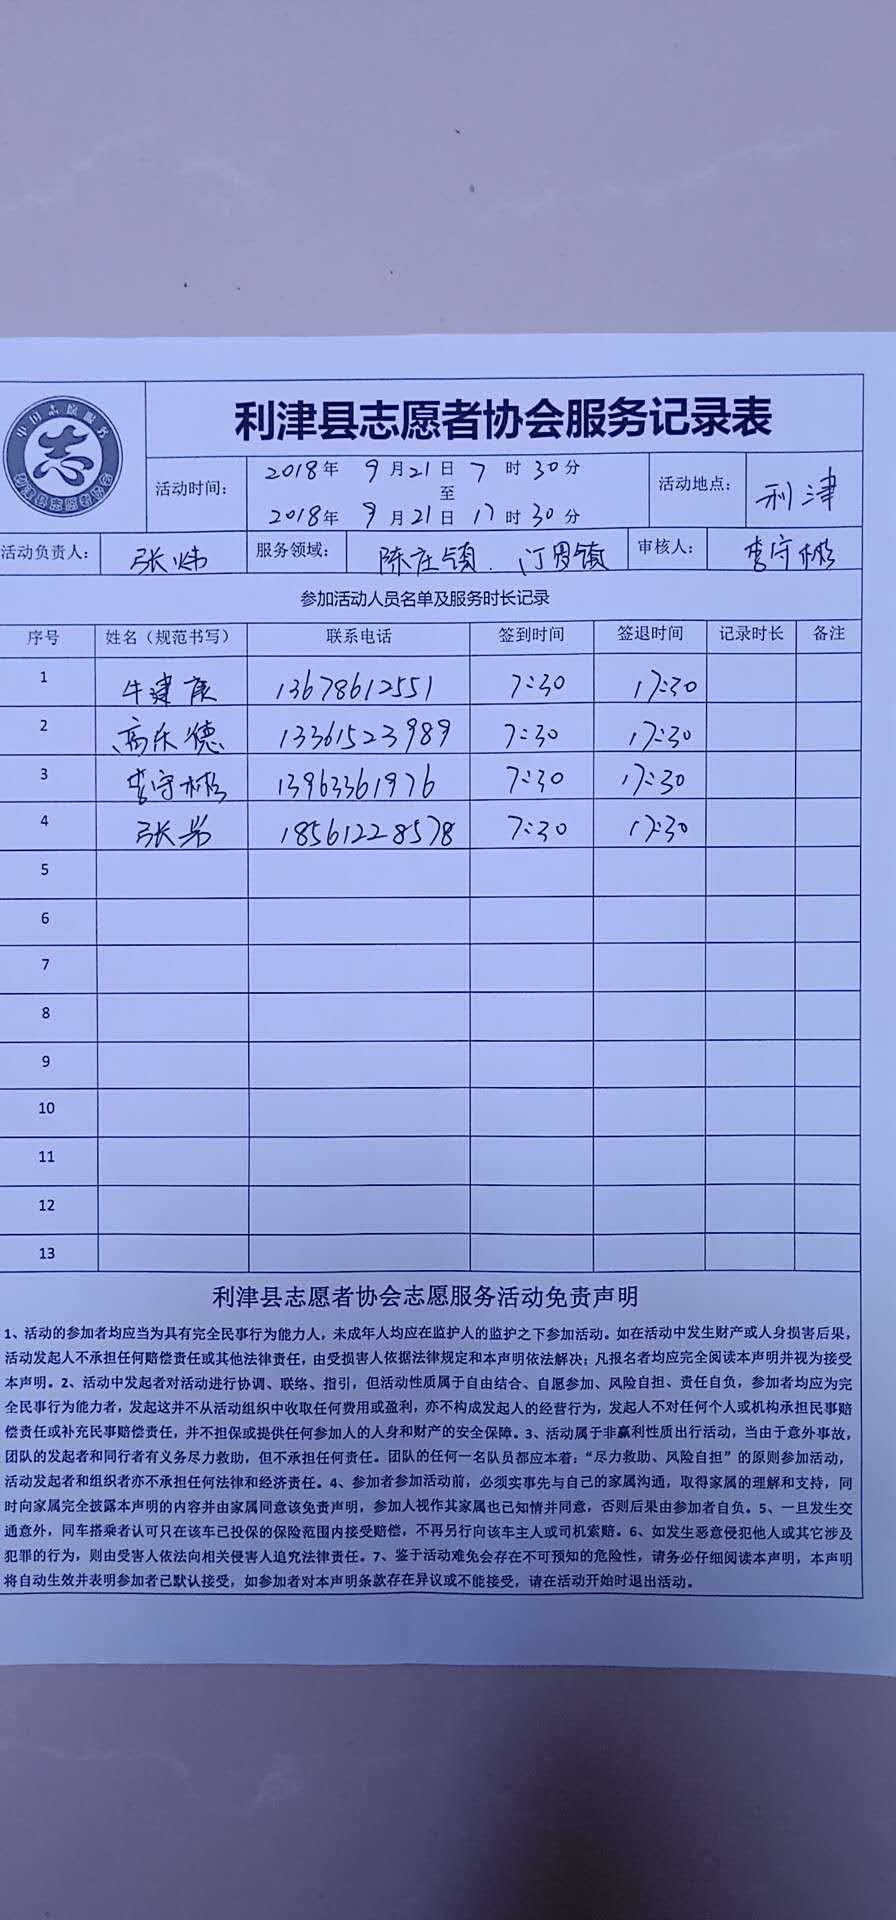 中国志愿服务
志
利津县志愿者协会
利津县志愿者协会服务记录表
活动时间：
2018年 9月21日 7时30分
至
2018年 9月21日 17时30分
活动地点： 利津
活动负责人： 张炜 服务领域： 陈庄镇、汀罗镇 审核人： 李守彬
参加活动人员名单及服务时长记录
序号 姓名（规范书写） 联系电话 签到时间 签退时间 记录时长 备注
1 牛建康 13678612551 7:30 17:30
2 高乐德 13361523989 7:30 17:30
3 李守彬 13963361976 7:30 17:30
4 张 18561228578 7:30 17:30
5
6
7
8
9
10
11
12
13
利津县志愿者协会志愿服务活动免责声明
1、活动的参加者均应当为具有完全民事行为能力人，未成年人均应在监护人的监护之下参加活动。如在活动中发生财产或人身损害后果，
活动发起人不承担任何赔偿责任或其他法律责任，由受损害人依据法律规定和本声明依法解决；凡报名者均应完全阅读本声明并视为接受
本声明。2、活动中发起者对活动进行协调、联络、指引，但活动性质属于自由结合、自愿参加、风险自担、责任自负，参加者均应为完
全民事行为能力者，发起这并不从活动组织中收取任何费用或盈利，亦不构成发起人的经营行为，发起人不对任何个人或机构承担民事赔
偿责任或补充民事赔偿责任，并不担保或提供任何参加人的人身和财产的安全保障。3、活动属于非赢利性质出行活动，当由于意外事故，
团队的发起者和同行者有义务尽力救助，但不承担任何责任。团队的任何一名队员都应本着：“尽力救助、风险自担”的原则参加活动，
活动发起者和组织者亦不承担任何法律和经济责任。4、参加者参加活动前，必须实事先与自己的家属沟通，取得家属的理解和支持，同
时向家属完全披露本声明的内容并由家属同意该免责声明，参加人视作其家属也已知情并同意，否则后果由参加者自负。5、一旦发生交
通意外，同车搭乘者认可只在该车已投保的保险范围内接受赔偿，不再另行向该车主人或司机索赔。6、如发生恶意侵犯他人或其它涉及
犯罪的行为，则由受害人依法向相关侵害人追究法律责任。7、鉴于活动难免会存在不可预知的危险性，请务必仔细阅读本声明，本声明
将自动生效并表明参加者已默认接受，如参加者对本声明条款存在异议或不能接受，请在活动开始时退出活动。